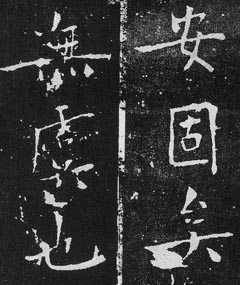 安固矣
無虞也